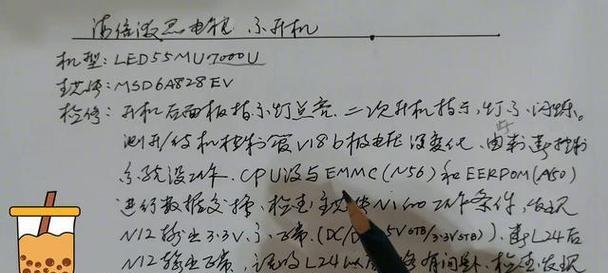 海信液晶电视 不开机
机型: LED55MU7000U
主芯片: MSD6A828EV
检修: 开机后面板指示灯点亮、二次开机指示灯不闪烁。
测开/待机控制管V18 b极电压没变化,由判断控制
系统没工作、CPU没与EMMC(N56)和EERPOM(A50)
进行数据交换、检查主芯片N1的工作条件,发现
N12输出3.3V不正常,(DC/DC 5VSTB/3.3VSTB)、断L24后
N12输出正常,说明L24以后有问题、检查发现